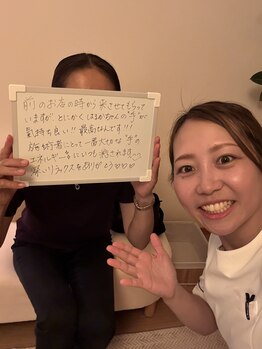 前のお店の時から来させてもらって
いますが、とにかくはるかちゃんの"手"が
気持ち良い!!最高なんです!!!
施術者にとって一番大切な"手"の
エネルギーにいつも癒されます
深いリラックスをありがとう♡♡♡